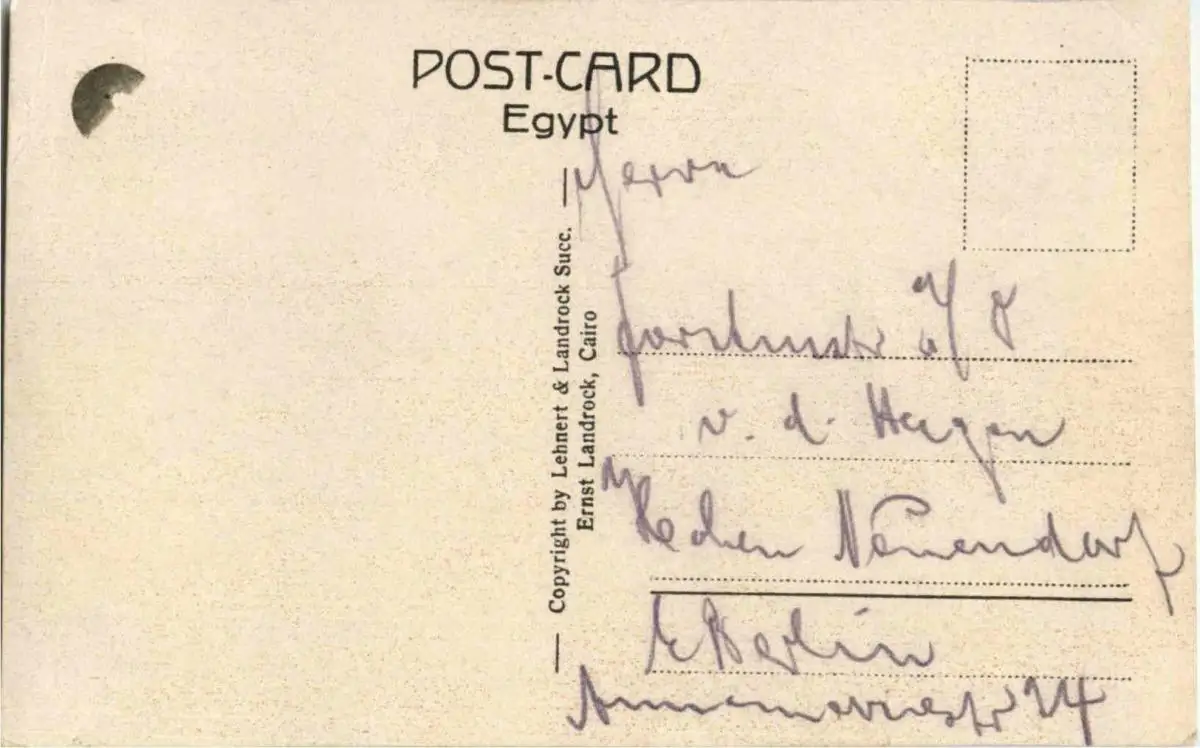 POST-CARD
Egypt
— Copyright by Lehnert & Landrock Succ. —
Ernst Landrock, Cairo
Herrn
v. d. Hagen
Hohen Neuendorf
Berlin
24